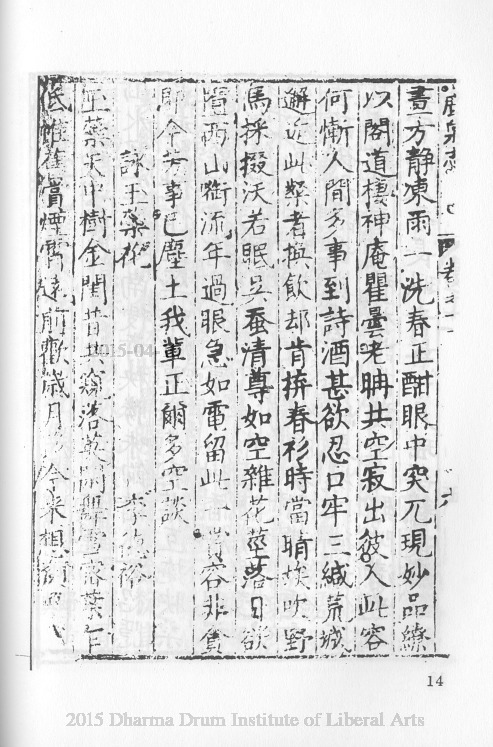 卷之一 六
晝方静凍雨一洗春正酣眼中突兀現妙品繚
以閣道棲神庵瞿曇老聃共空寂出彼入此容
何慚人間多事到詩酒甚欲忍口牢三緘荒城
邂逅此粲者換飲却肯拚春衫時當晴埃吹野
馬採掇沃若眠吳蚕清尊如空雜花墮落日欲
西山銜流年過眼急如電留此一賞容非貪
即今萬事已塵土我輩正爾多空談
詠玉蘂花 李德裕
玉蘂天中樹金閨昔共窺落英閑舞雪密葉乍
低帷舊賞煙霄遠前歡歲月移今来想顔
14
2015 Dharma Drum Institute of Liberal Arts